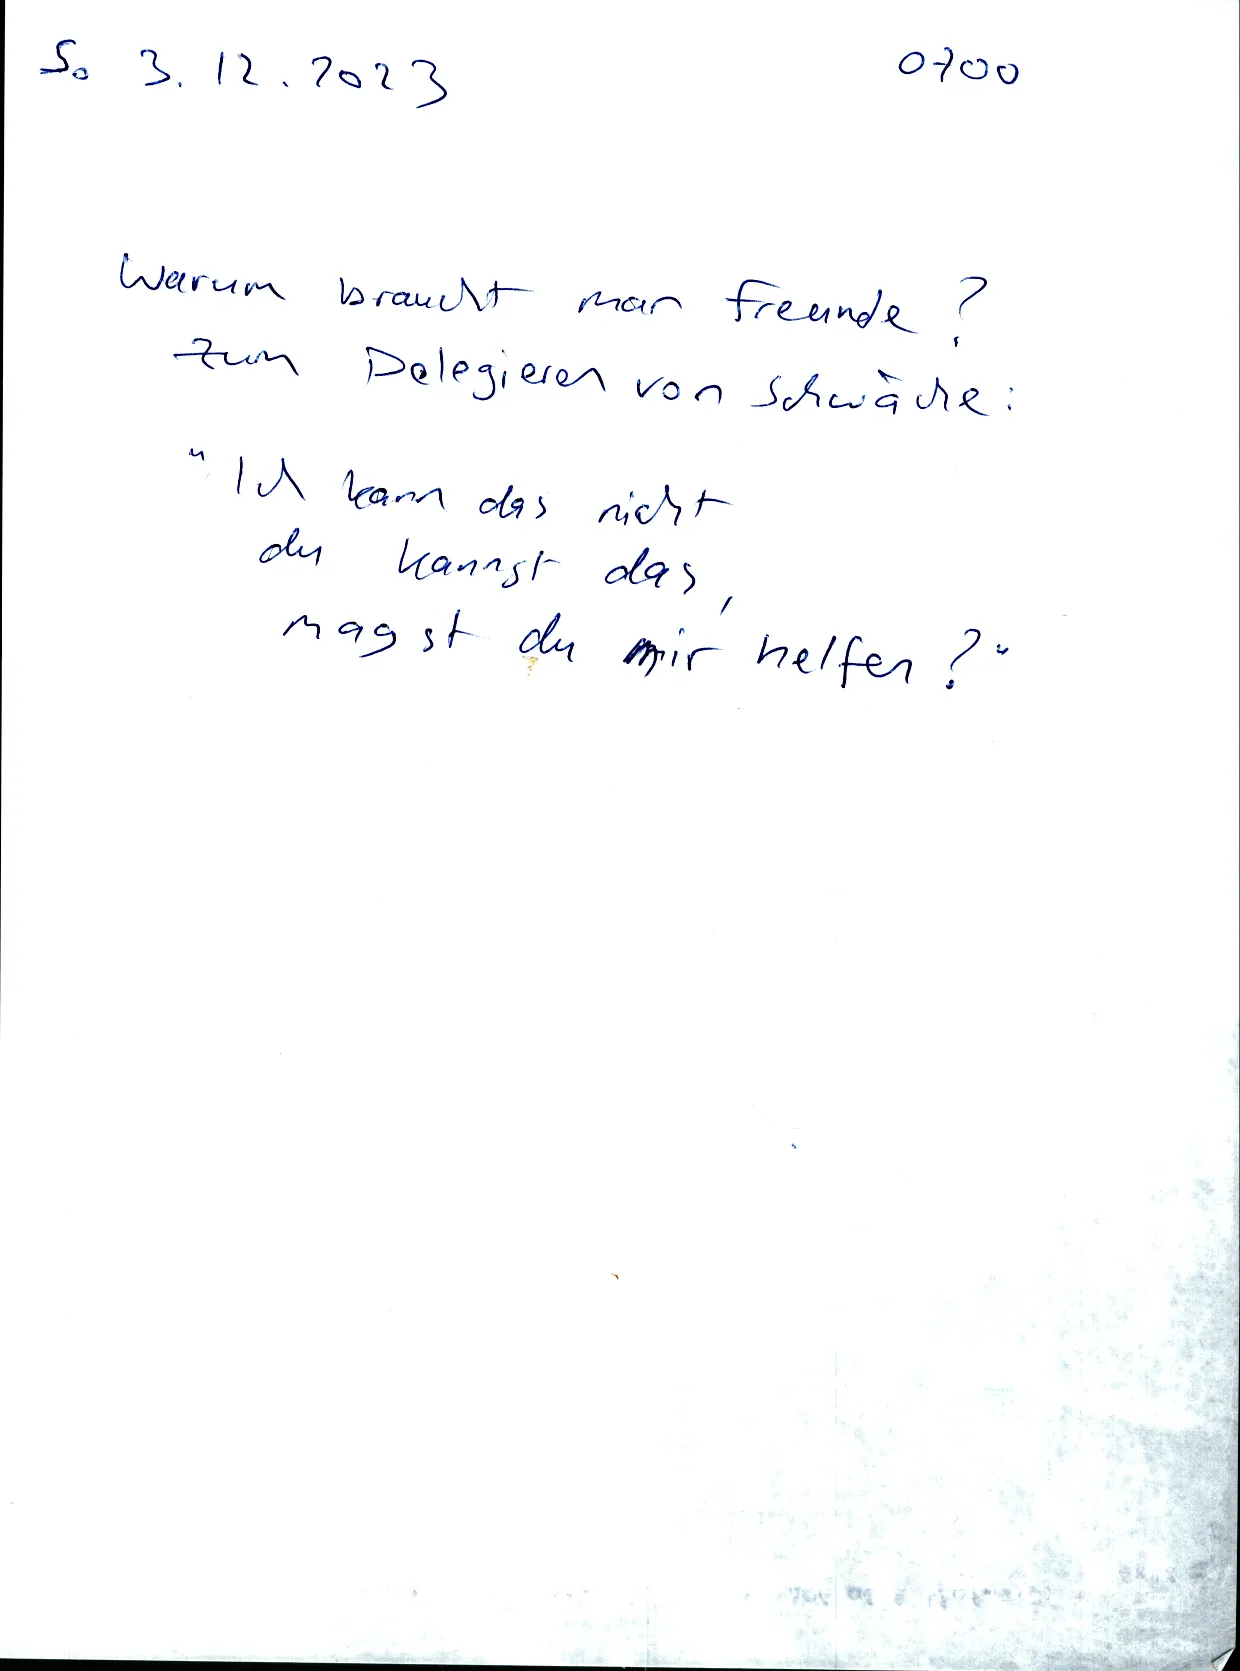 So 3.12.2023 0700
Warum braucht man Freunde?
Zum Delegieren von Schwäche:
"Ich kann das nicht
du kannst das,
magst du mir helfen?"